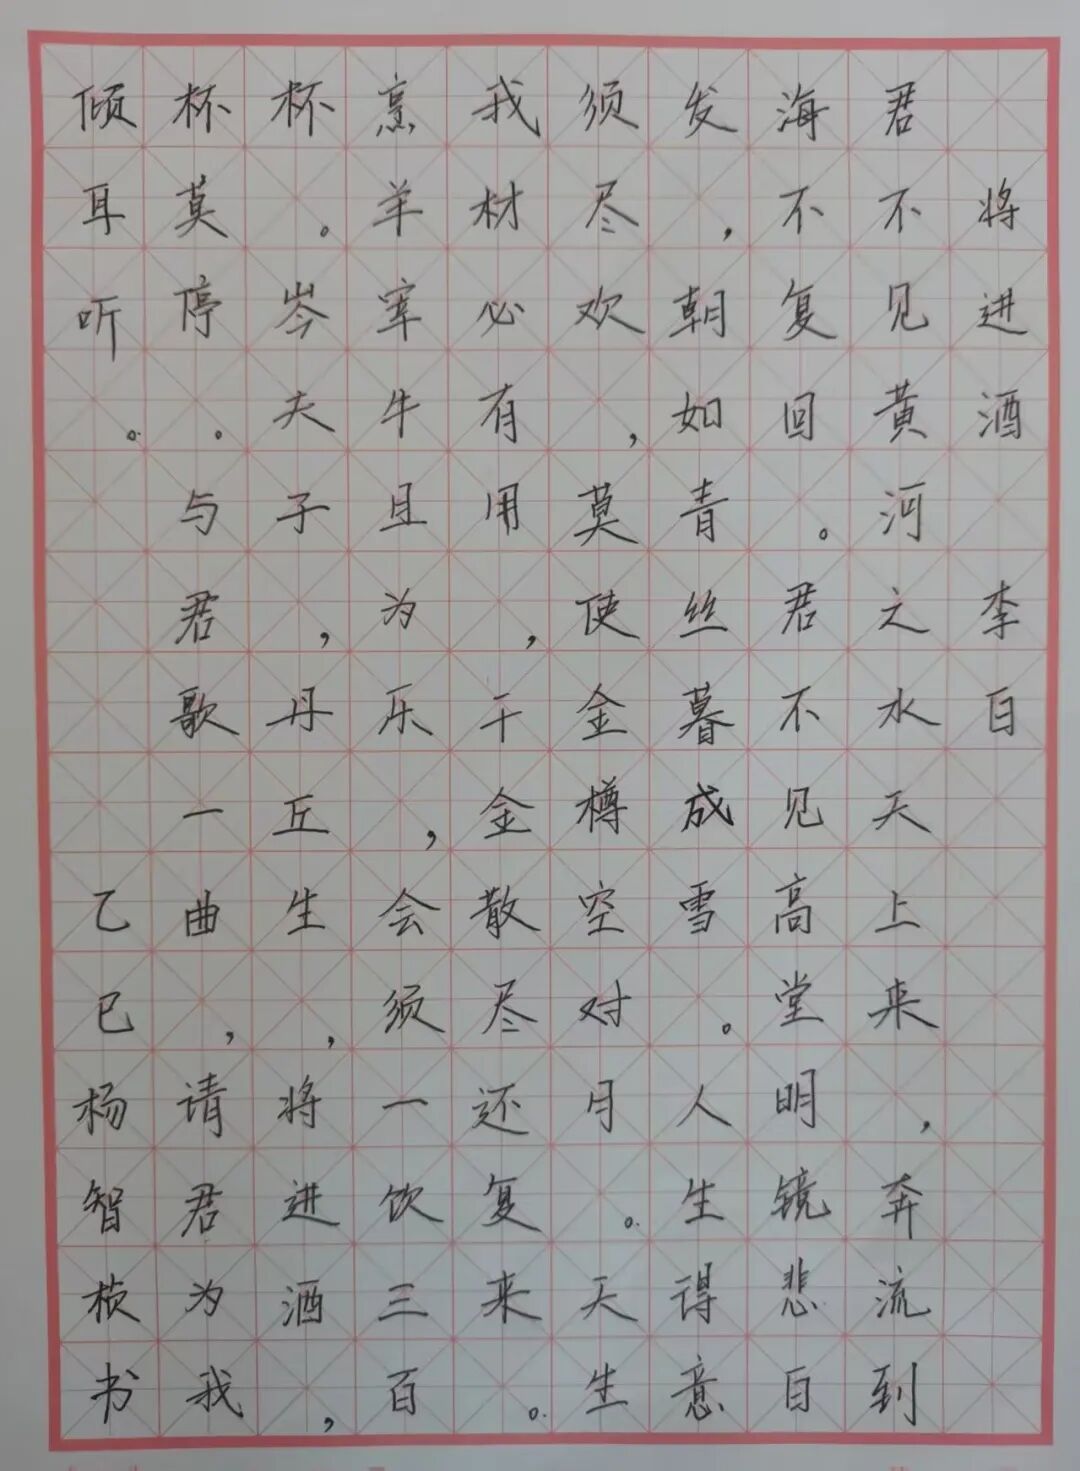 将进酒 李白
君不见黄河之水天上来，奔流到
海不复回。君不见高堂明镜悲白
发，朝如青丝暮成雪。人生得意
须尽欢，莫使金樽空对月。天生
我材必有用，千金散尽还复来。
烹羊宰牛且为乐，会须一饮三百
杯。岑夫子，丹丘生，将进酒，
杯莫停。与君歌一曲，请君为我
倾耳听。 乙巳杨智桢书